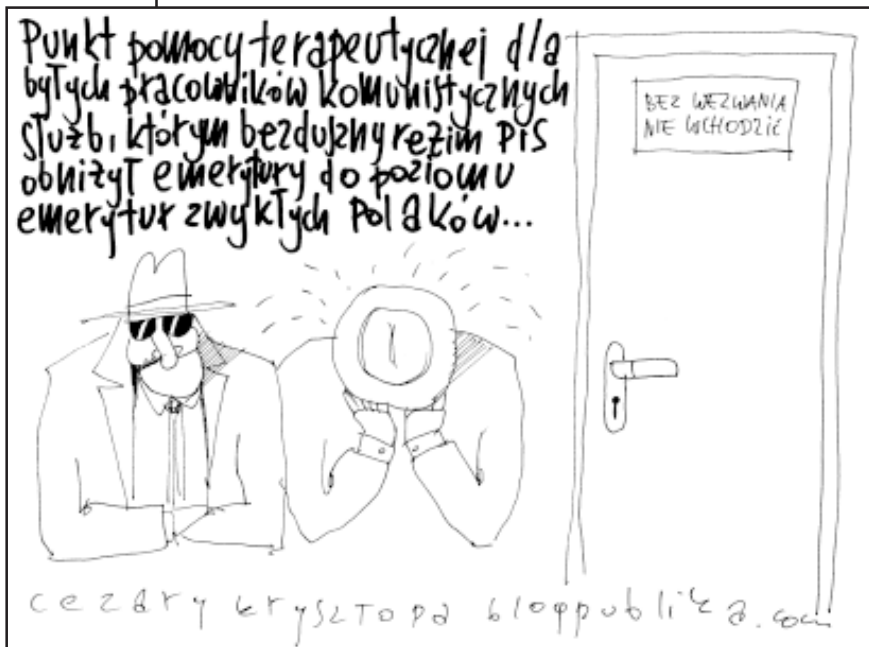 Punkt pomocy terapeutycznej dla
byłych pracowników komunistycznych
służb, którym bezduszny reżim PiS
obniżył emerytury do poziomu
emerytur zwykłych Polaków...
BEZ WEZWANIA
NIE WCHODZIĆ
cezary krysztopa blogpublika.com